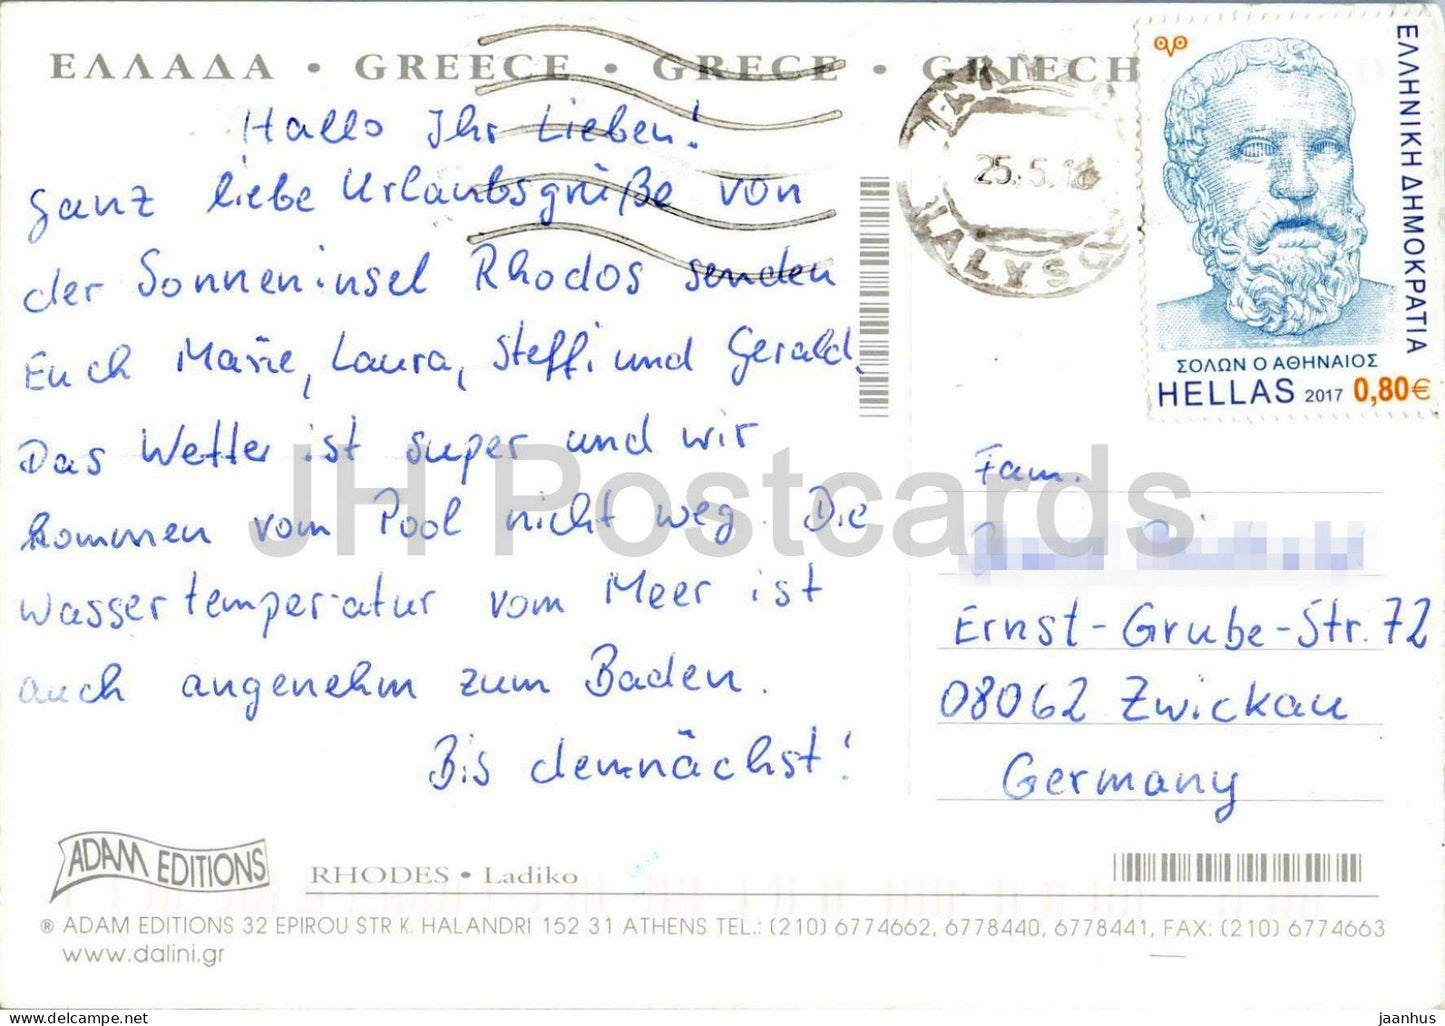 ΕΛΛΑΔΑ • GREECE • GRECE • GRIECH
Hallo Ihr Lieben!
Ganz liebe Urlaubsgrüße von
der Sonneninsel Rhodos senden
Euch Marie, Laura, Steffi und Gerald.
Das Wetter ist super und wir
kommen vom Pool nicht weg. Die
Wassertemperatur vom Meer ist
auch angenehm zum Baden.
Bis demnächst!
25.5.18
IALYSO
ΕΛΛΗΝΙΚΗ ΔΗΜΟΚΡΑΤΙΑ
ΣΟΛΩΝ Ο ΑΘΗΝΑΙΟΣ
HELLAS 2017 0,80€
JH Postcards
Fam.
Ernst-Grube-Str. 72
08062 Zwickau
Germany
ADAM EDITIONS
RHODES • Ladiko
® ADAM EDITIONS 32 EPIROU STR K. HALANDRI 152 31 ATHENS TEL.: (210) 6774662, 6778440, 6778441, FAX: (210) 6774663
www.dalini.gr
www.delcampe.net
jaanhus